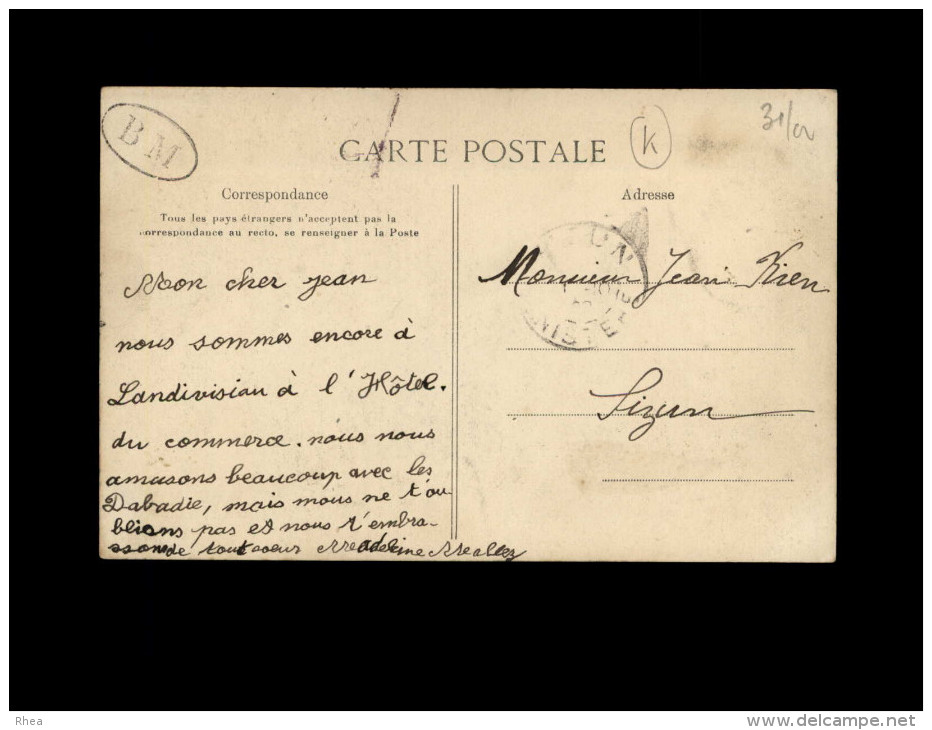 BM
K
CARTE POSTALE
Correspondance
Tous les pays étrangers n'acceptent pas la
correspondance au recto, se renseigner à la Poste
Mon cher jean
nous sommes encore à
Landivisiau à l'Hôtel.
du commerce. nous nous
amusons beaucoup avec les
Dabadie, mais nous ne t'ou
blions pas et nous t'embra-
ssons de tout coeur Madeleine
Adresse
Monsieur Jean Kien
Sizun
Rhea
http://www.delcampe.net